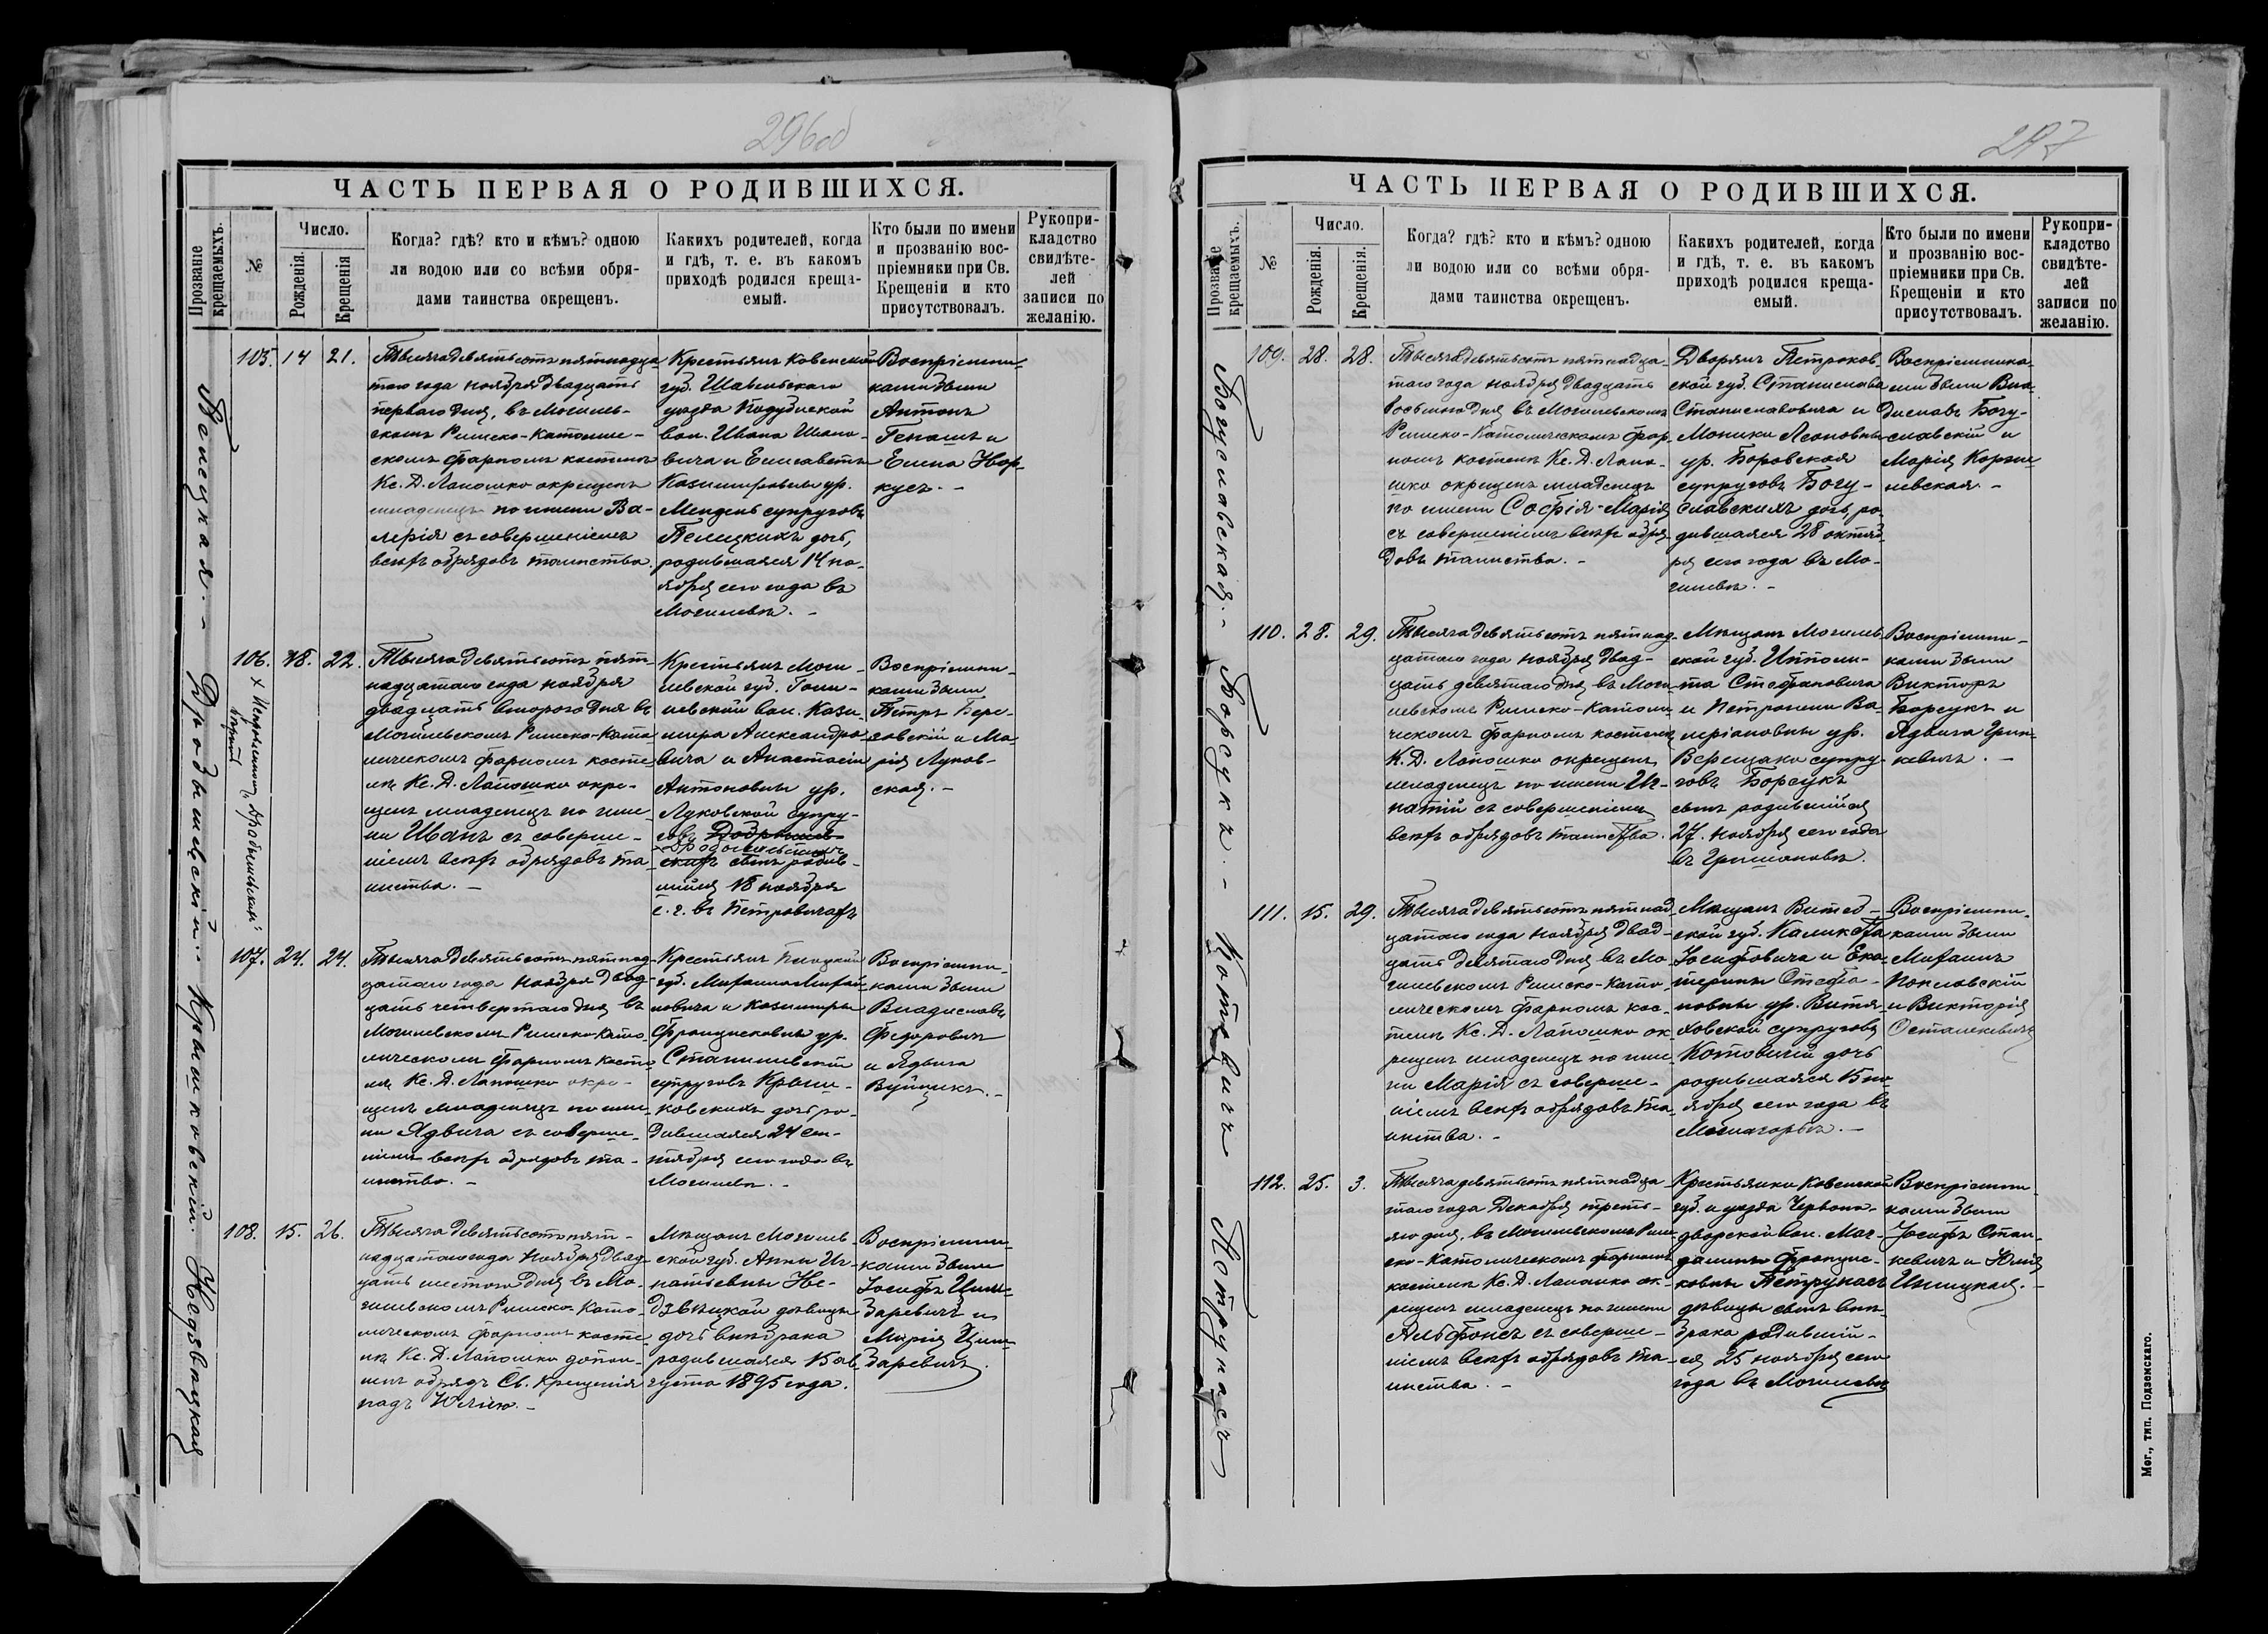 296об
ЧАСТЬ ПЕРВАЯ О РОДИВШИХСЯ.
Прозваніе крещаемыхъ.
№
Число.
Рожденія.
Крещенія
Когда? гдѣ? кто и кѣмъ? одною
ли водою или со всѣми обря-
дами таинства окрещенъ.
Какихъ родителей, когда
и гдѣ, т. е. въ какомъ
приходѣ родился креща-
емый.
Кто были по имени
и прозванію вос-
пріемники при Св.
Крещеніи и кто
присутствовалъ.
Рукопри-
кладство
свидѣте-
лей
записи по
желанію.
105. 14 21.
Тысяча девятьсотъ пятнадца-
таго года ноября двадцать
перваго дня, въ Могилев-
скомъ Римско-Католиче-
скомъ фарномъ костелѣ
Кс. Д. Лапошко окрещенъ
младенецъ по имени Ва-
лерія съ совершеніемъ
всѣхъ обрядовъ таинства
Крестьянъ Ковенской
губ. Шавельскаго
уѣзда Подубиской
вол. Ивана Ивано-
вича и Елисаветы
Казиміровны ур.
супруговъ
дочь,
родившаяся 14 но-
ября сего года въ
Могилевѣ. -
Воспріемни-
ками были
Антонъ
и
Елена Нор-
кусъ. -
Дробышевскій. -
106. 18. 22.
х Исправленному "Дробышевскихъ"
вѣрить
Тысяча девятьсотъ пят-
надцатаго года ноября
двадцать второго дня въ
Могилевскомъ Римско-Като-
лическомъ фарномъ косте-
лѣ Кс. Д. Лапошко окре-
щенъ младенецъ по име-
ни Иванъ съ соверше-
ніемъ всѣхъ обрядовъ та-
инства. -
Крестьянъ Моги-
левской губ.
вол. Кази-
мира Александро-
вича и Анастасіи
Антоновны ур.
Луковской супру-
говъ
х Дробышевскихъ
сынъ родив-
шійся 18 ноября
с. г. въ Петровичахъ
Воспріемни-
ками были
Петръ Бере-
зовскій и Ма-
рія Луков-
ская. -
107. 24. 24.
Тысяча девятьсотъ пятнад-
цатаго года ноября двад-
цать четвертаго дня въ
Могилевскомъ Римско-Като-
лическомъ фарномъ косте-
лѣ Кс. Д. Лапошко окре-
щенъ младенецъ по име-
ни Ядвига съ соверше-
ніемъ всѣхъ обрядовъ та-
инства. -
Крестьянъ Плоцкой
губ. Михаила Михай-
ловича и Казиміры
Францисковны ур.
супруговъ
дочь ро-
дившаяся 24 сен-
тября сего года въ
Могилевѣ. -
Воспріемни-
ками были
Владиславъ
Федоровичъ
и Ядвига
Вуйцикъ. -
Недзвѣцкая
108. 15. 26.
Тысяча девятьсотъ пят-
надцатаго года ноября двад-
цать шестого дня въ Мо-
гилевскомъ Римско-Като-
лическомъ фарномъ косте-
лѣ Кс. Д. Лапошко допол-
ненъ обрядъ Св. Крещенія
надъ Юліею. -
Мѣщанъ Могилев-
ской губ. Анны Иг-
натьевны Не-
дзвѣцкой дѣвицы
дочь внѣ брака
родившаяся 15 ав-
густа 1895 года.
Воспріемни-
ками были
Іосифъ
и
Марія
297
ЧАСТЬ ПЕРВАЯ О РОДИВШИХСЯ.
Прозваніе крещаемыхъ.
№
Число.
Рожденія.
Крещенія.
Когда? гдѣ? кто и кѣмъ? одною
ли водою или со всѣми обря-
дами таинства окрещенъ.
Какихъ родителей, когда
и гдѣ, т. е. въ какомъ
приходѣ родился креща-
емый.
Кто были по имени
и прозванію вос-
пріемники при Св.
Крещеніи и кто
присутствовалъ.
Рукопри-
кладство
свидѣте-
лей
записи по
желанію.
Богуславская. -
109. 28. 28.
Тысяча девятьсотъ пятнадца-
таго года ноября двадцать
восьмого дня въ Могилевскомъ
Римско-Католическомъ фар-
номъ костелѣ Кс. Д. Лапо-
шко окрещенъ младенецъ
по имени Софія-Марія
съ совершеніемъ всѣхъ обря-
довъ таинства. -
Дворянъ Петроков-
ской губ. Станислава
Станиславовича и
Моники Леоновны
ур. Боровская
супруговъ Богу-
славскихъ дочь, ро-
дившаяся 28 октяб-
ря сего года въ Мо-
гилевѣ. -
Воспріемника-
ми были Вла-
диславъ Богу-
славскій и
Марія
Борсукъ. -
110. 28. 29.
Тысяча девятьсотъ пятнад-
цатаго года ноября двад-
цать девятаго дня въ Моги-
левскомъ Римско-Католи-
ческомъ фарномъ костелѣ
К. Д. Лапошко окрещенъ
младенецъ по имени Иг-
натій съ совершеніемъ
всѣхъ обрядовъ таинства.
Мѣщанъ Могилев-
ской губ. Ипполи-
та Стефановича
и Петронели Ва-
леріановны ур.
Верещако супру-
говъ Борсукъ
сынъ родившійся
27. ноября сего года
въ
Воспріемни-
ками были
Викторъ
Борсукъ и
Ядвига Грин-
кевичъ. -
Котовичъ
111. 15. 29.
Тысяча девятьсотъ пятнад-
цатаго года ноября двад-
цать девятаго дня въ Мо-
гилевскомъ Римско-Като-
лическомъ фарномъ кос-
телѣ Кс. Д. Лапошко ок-
рещенъ младенецъ по име-
ни Марія съ соверше-
ніемъ всѣхъ обрядовъ та-
инства. -
Мѣщанъ Витеб-
ской губ. Каликста
Іосифовича и Ека-
терины Стефа-
новны ур.
супруговъ
дочь
родившаяся 15 но-
ября сего года въ
Воспріемни-
ками были
Михаилъ
и Викторія
Петрунасъ
112. 25. 3.
Тысяча девятьсотъ пятнадца-
таго года Декабря треть-
яго дня, въ Могилевскомъ Рим-
ско-Католическомъ фарномъ
костелѣ Кс. Д. Лапошко ок-
рещенъ младенецъ по имени
Альфонсъ съ соверше-
ніемъ всѣхъ обрядовъ та-
инства. -
Крестьянки Ковенской
губ. и уѣзда Червоно-
дворской вол. Маг-
далины Францис-
ковны Петрунасъ
дѣвицы сынъ внѣ
брака родившій-
ся 25 ноября сего
года въ Могилевѣ
Воспріемни-
ками были
Іосифъ Стан-
кевичъ и Юлія
Мог., тип. Подземскаго.